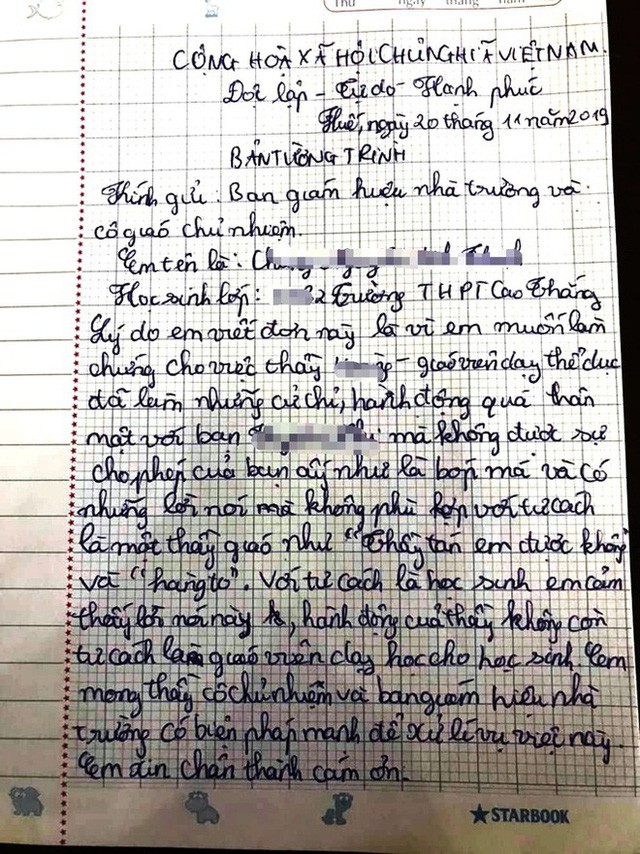 Thứ ngày tháng năm
CỘNG HOÀ XÃ HỘI CHỦ NGHĨA VIỆT NAM.
Độc lập - Tự do - Hạnh phúc
Huế, ngày 20 tháng 11 năm 2019
BẢN TƯỜNG TRÌNH
Kính gửi: Ban giám hiệu nhà trường và
cô giáo chủ nhiệm.
Em tên là:
Học sinh lớp: 2 Trường THPT Cao Thắng
Lý do em viết đơn này là vì em muốn làm
chứng cho việc thầy - giáo viên dạy thể dục
đã làm những cử chỉ, hành động quá thân
mật với bạn mà không được sự
cho phép của bạn ấy như là bóp má và có
những lời nói mà không phù hợp với tư cách
là một thầy giáo như "Thầy tán em được không
và "hàng to". Với tư cách là học sinh em cảm
thấy lời nói này, hành động của thầy không còn
tư cách làm giáo viên dạy học cho học sinh. Em
mong thầy cô chủ nhiệm và ban giám hiệu nhà
trường có biện pháp mạnh để xử lí vụ việc này.
Em xin chân thành cám ơn.
★STARBOOK